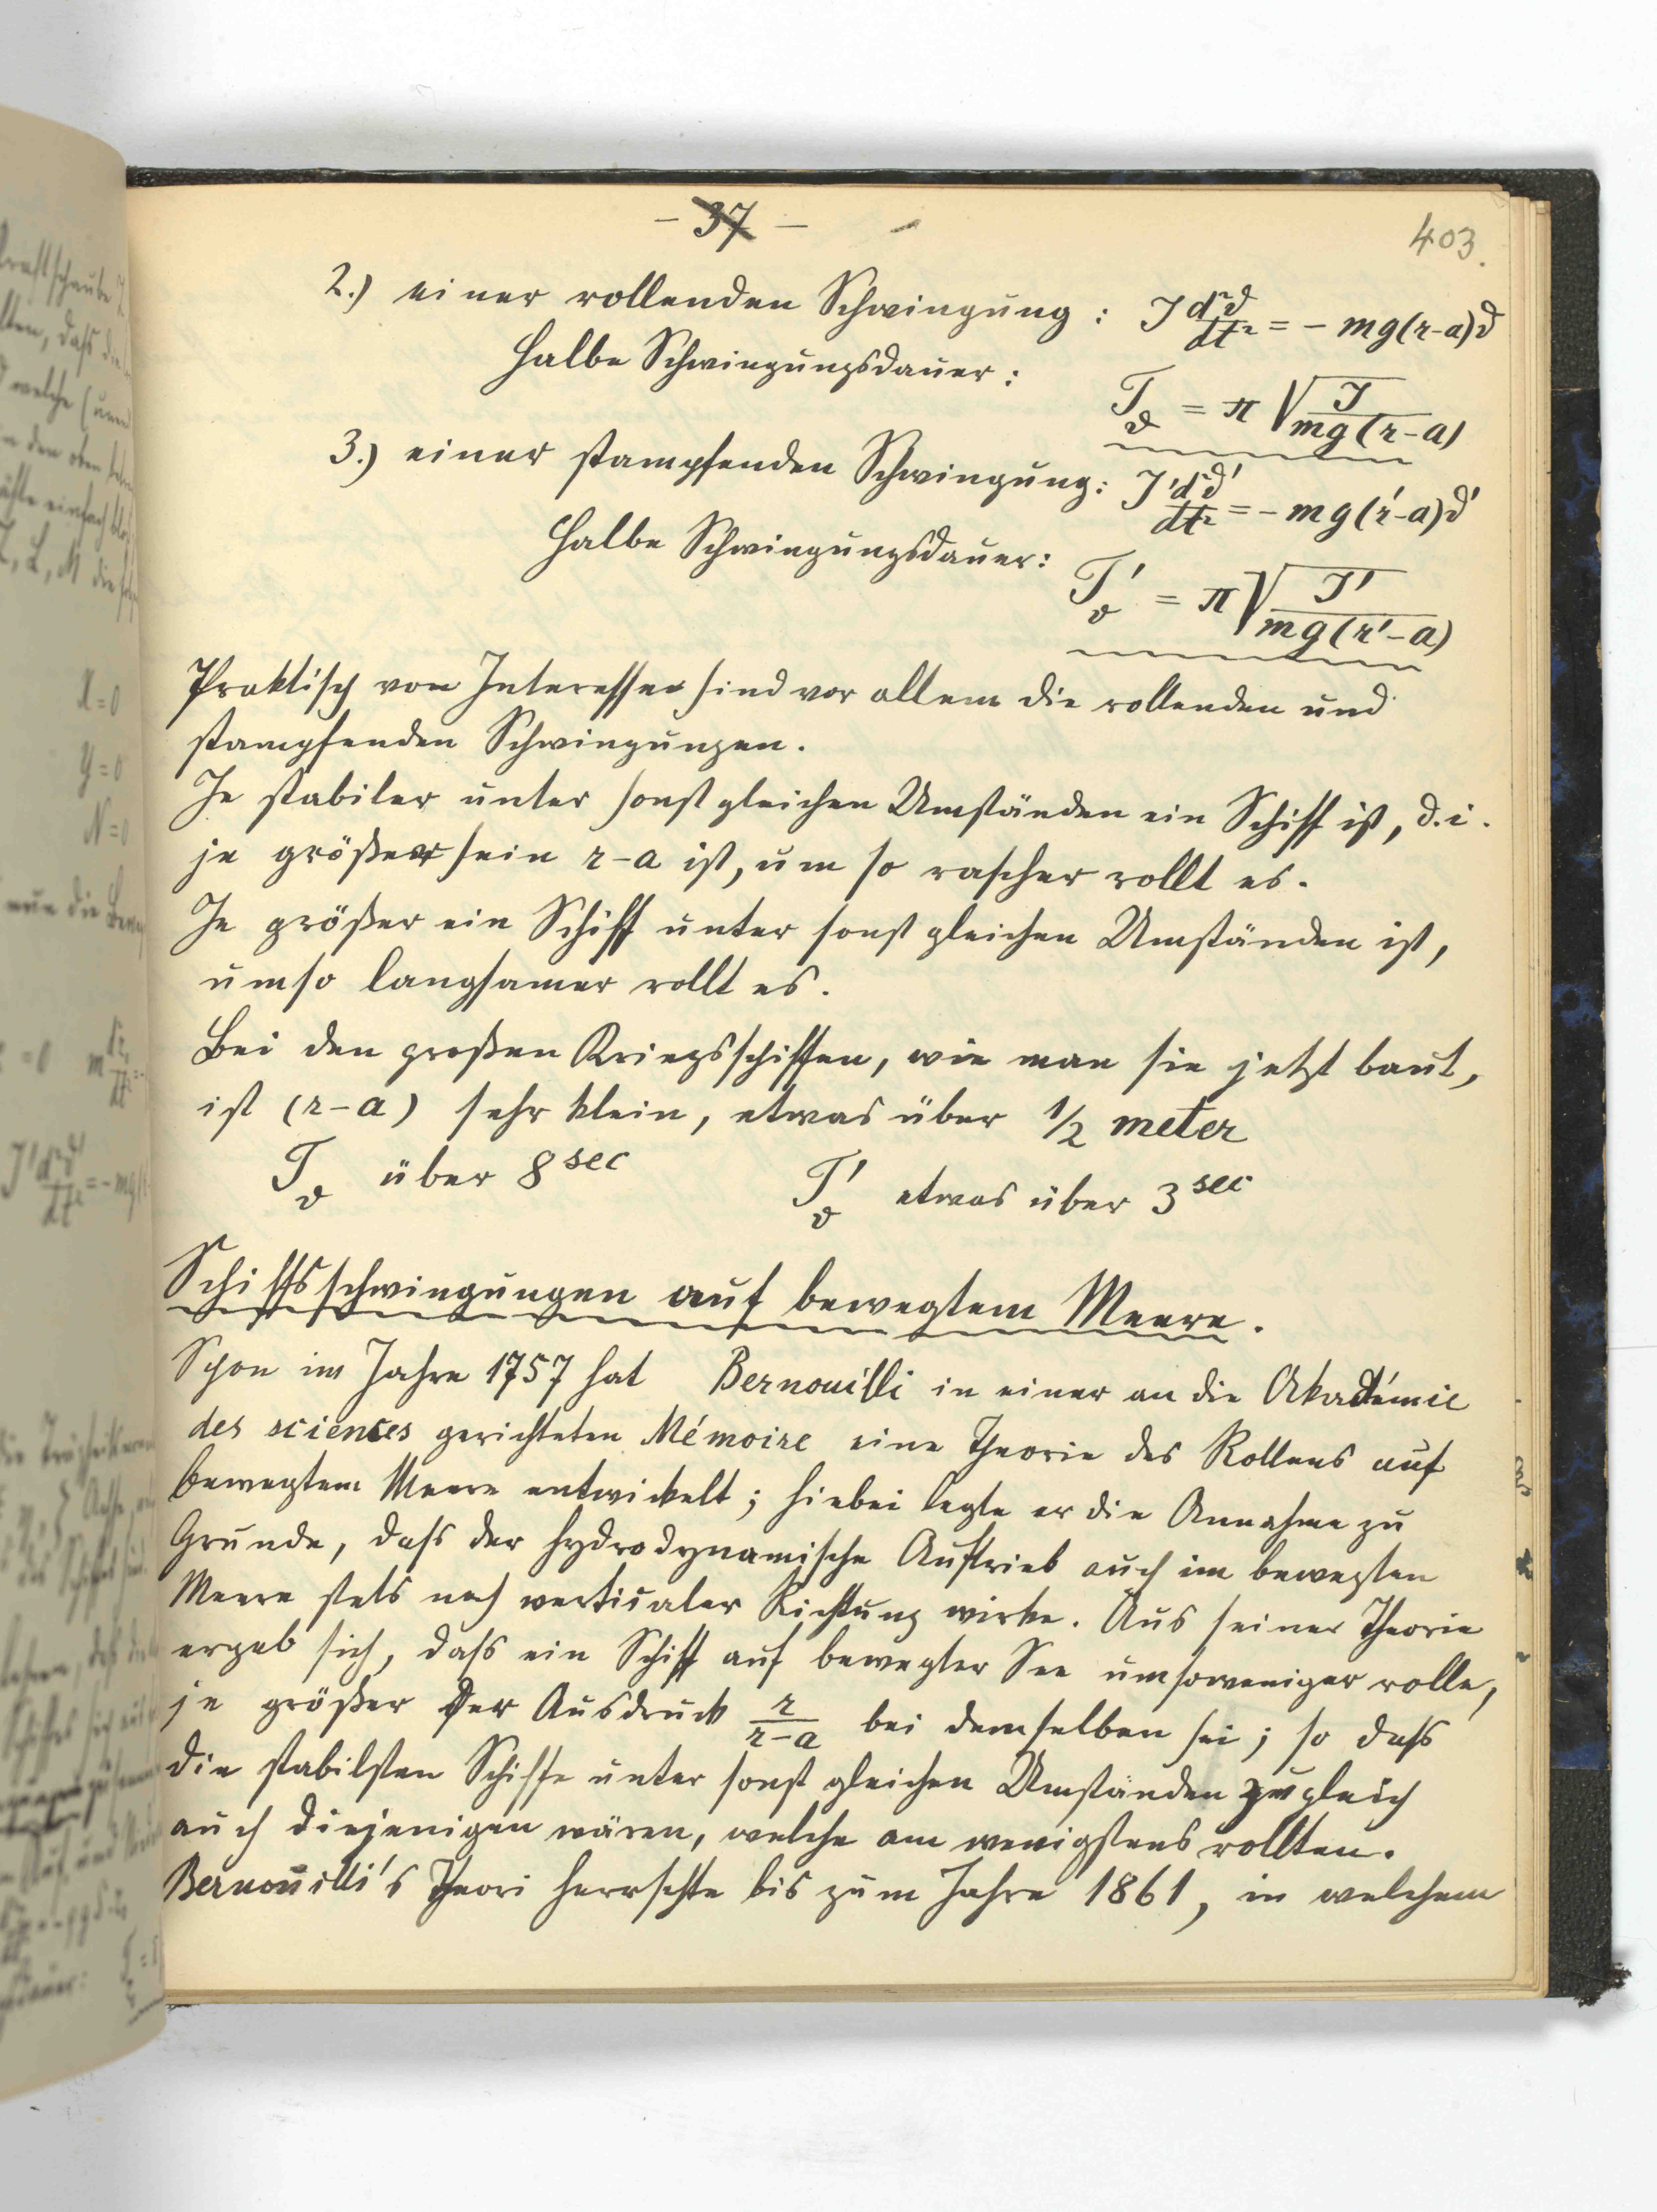 - 37 -
403.
2.) einer rollenden Schwingung : J d²ϑ/dt² = - mg(r-a)ϑ
Halbe Schwingungsdauer :
T_ϑ = π √(J/mg(r-a))
3.) einer stampfenden Schwingung : J' d²ϑ'/dt² = - mg(r'-a)ϑ'
Halbe Schwingungsdauer :
T'_ϑ = π √(J'/mg(r'-a))
Praktisch von Interesse sind vor allem die rollenden und
stampfenden Schwingungen.
Je stabiler unter sonst gleichen Umständen ein Schiff ist, d.i.
je größer sein r-a ist, um so rascher rollt es.
Je größer ein Schiff unter sonst gleichen Umständen ist,
umso langsamer rollt es.
Bei den großen Kriegsschiffen, wie man sie jetzt baut,
ist (r-a) sehr klein, etwas über 1/2 meter
T_ϑ über 8 sec T'_ϑ etwas über 3 sec
Schiffsschwingungen auf bewegtem Meere.
Schon im Jahre 1757 hat Bernouilli in einer an die Akadémie
des sciences gerichteten Mémoire eine Theorie des Rollens auf
bewegtem Meere entwickelt; hiebei legte er die Annahme zu
Grunde, dass der hydrodynamische Auftrieb auch im bewegten
Meere stets nach verticaler Richtung wirke. Aus seiner Theorie
ergab sich, dass ein Schiff auf bewegter See umsoweniger rolle,
je größer der Ausdruck r/r-a bei demselben sei; so dass
die stabilsten Schiffe unter sonst gleichen Umständen zugleich
auch diejenigen wären, welche am wenigstens rollten.
Bernouilli's Theori herrschte bis zum Jahre 1861, in welchem